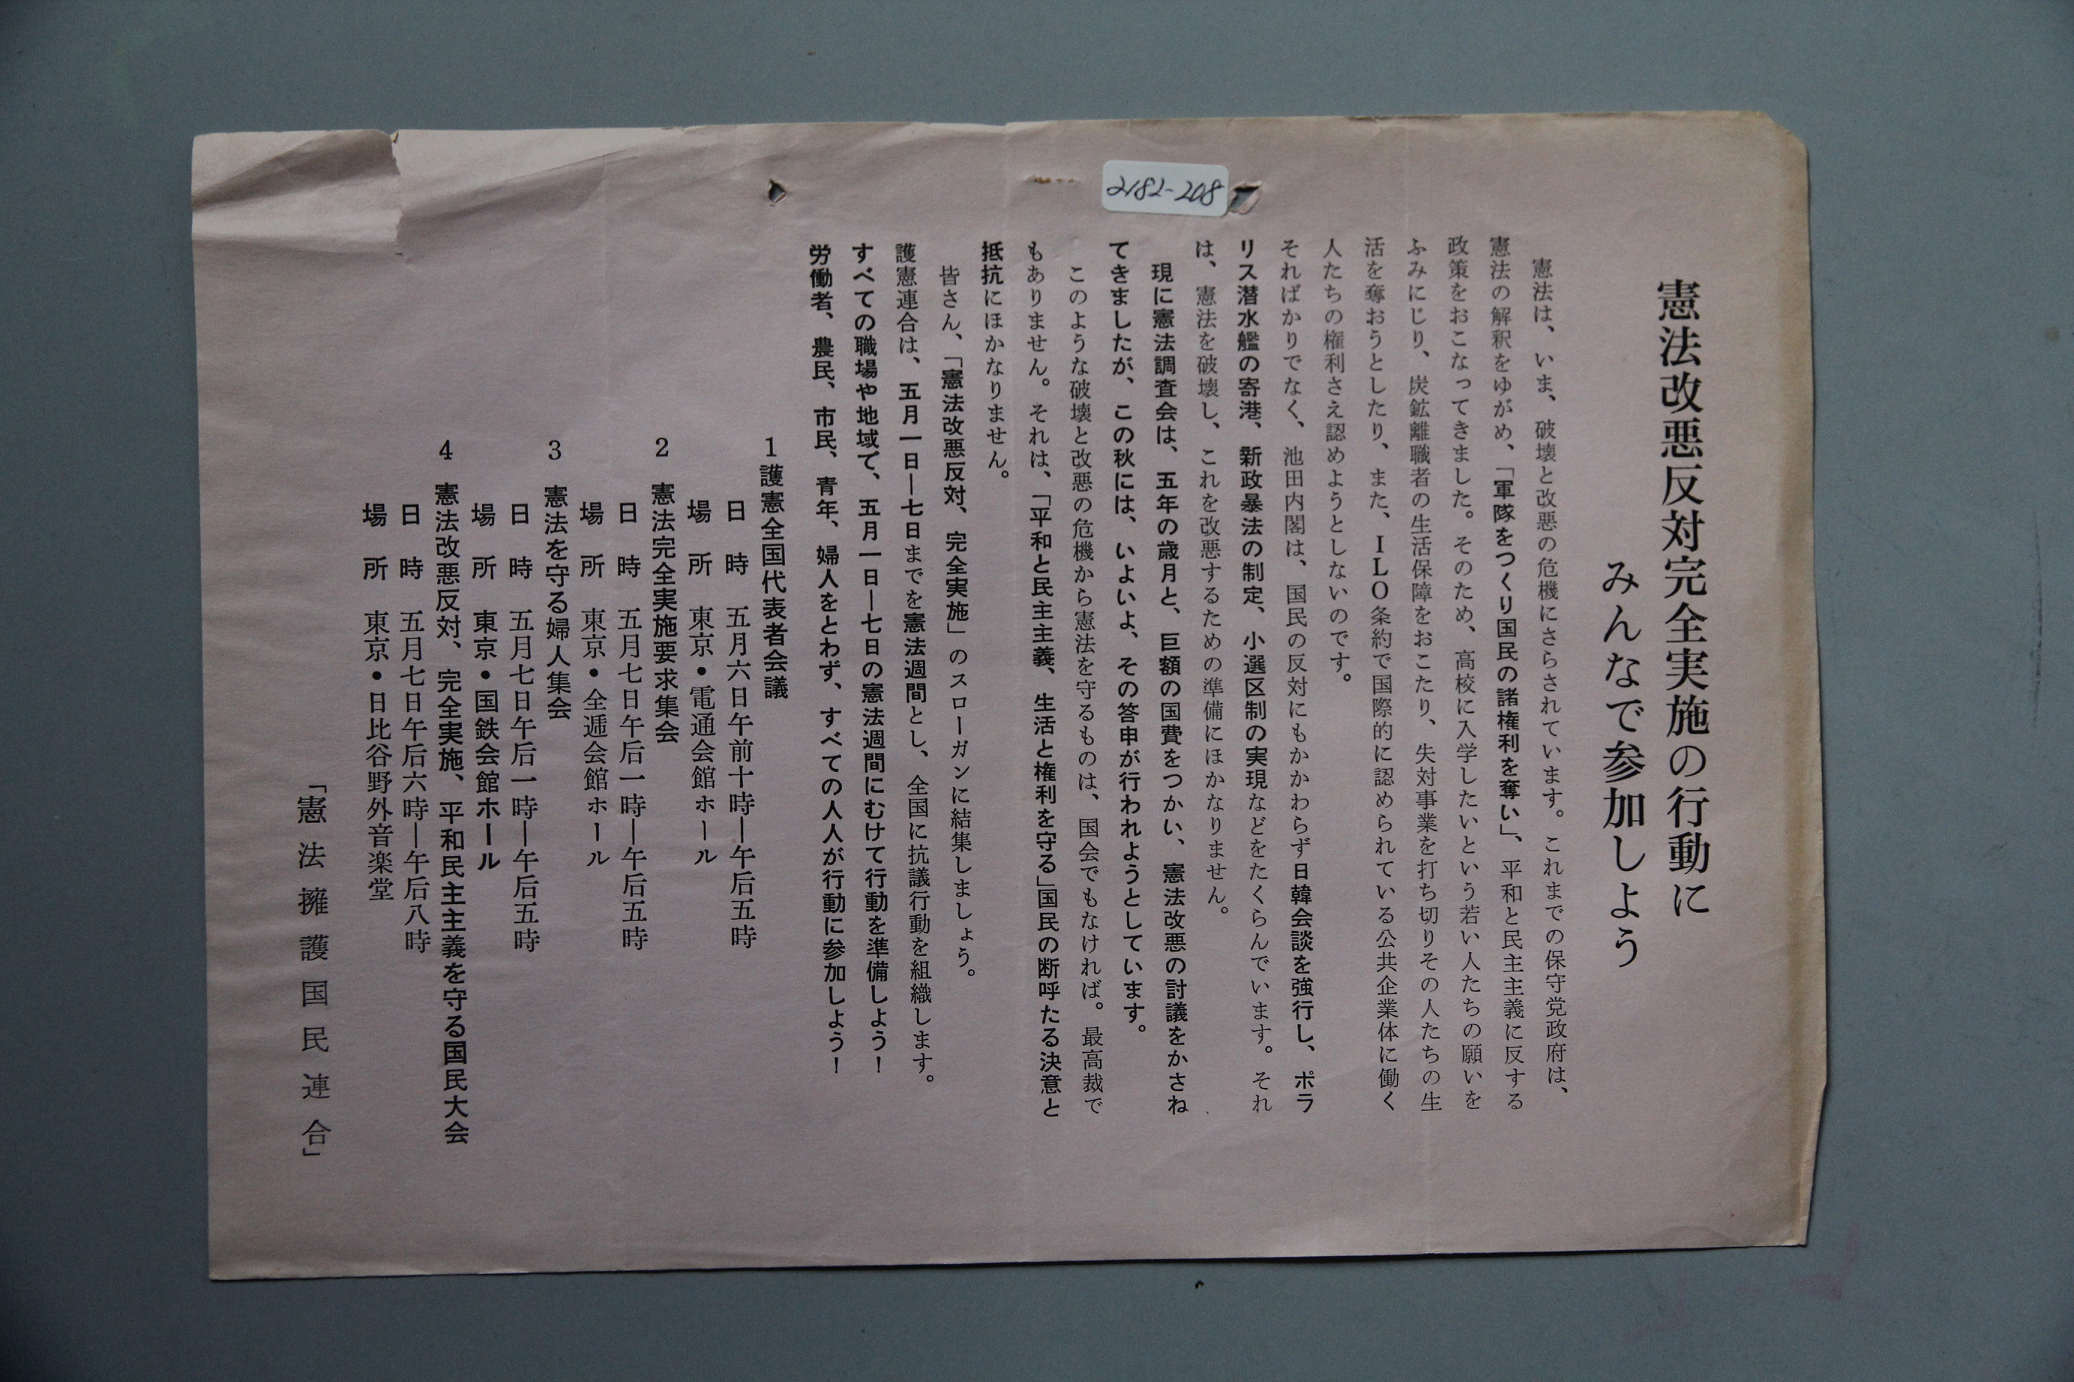 2182-208
憲法改悪反対完全実施の行動に
みんなで参加しよう
憲法は、いま、破壊と改悪の危機にさらされています。これまでの保守党政府は、
憲法の解釈をゆがめ、「軍隊をつくり国民の諸権利を奪い」、平和と民主主義に反する
政策をおこなってきました。そのため、高校に入学したいという若い人たちの願いを
ふみにじり、炭鉱離職者の生活保障をおこたり、失対事業を打ち切りその人たちの生
活を奪おうとしたり、また、ILO条約で国際的に認められている公共企業体に働く
人たちの権利さえ認めようとしないのです。
そればかりでなく、池田内閣は、国民の反対にもかかわらず日韓会談を強行し、ポラ
リス潜水艦の寄港、新政暴法の制定、小選区制の実現などをたくらんでいます。それ
は、憲法を破壊し、これを改悪するための準備にほかなりません。
現に憲法調査会は、五年の歳月と、巨額の国費をつかい、憲法改悪の討議をかさね
てきましたが、この秋には、いよいよ、その答申が行われようとしています。
このような破壊と改悪の危機から憲法を守るものは、国会でもなければ。最高裁で
もありません。それは、「平和と民主主義、生活と権利を守る」国民の断呼たる決意と
抵抗にほかなりません。
皆さん、「憲法改悪反対、完全実施」のスローガンに結集しましょう。
護憲連合は、五月一日―七日までを憲法週間とし、全国に抗議行動を組織します。
すべての職場や地域で、五月一日―七日の憲法週間にむけて行動を準備しよう！
労働者、農民、市民、青年、婦人をとわず、すべての人人が行動に参加しよう！
1 護憲全国代表者会議
日 時 五月六日午前十時―午后五時
場 所 東京・電通会館ホール
2 憲法完全実施要求集会
日 時 五月七日午后一時―午后五時
場 所 東京・全逓会館ホール
3 憲法を守る婦人集会
日 時 五月七日午后一時―午后五時
場 所 東京・国鉄会館ホール
4 憲法改悪反対、完全実施、平和民主主義を守る国民大会
日 時 五月七日午后六時―午后八時
場 所 東京・日比谷野外音楽堂
「憲法擁護国民連合」